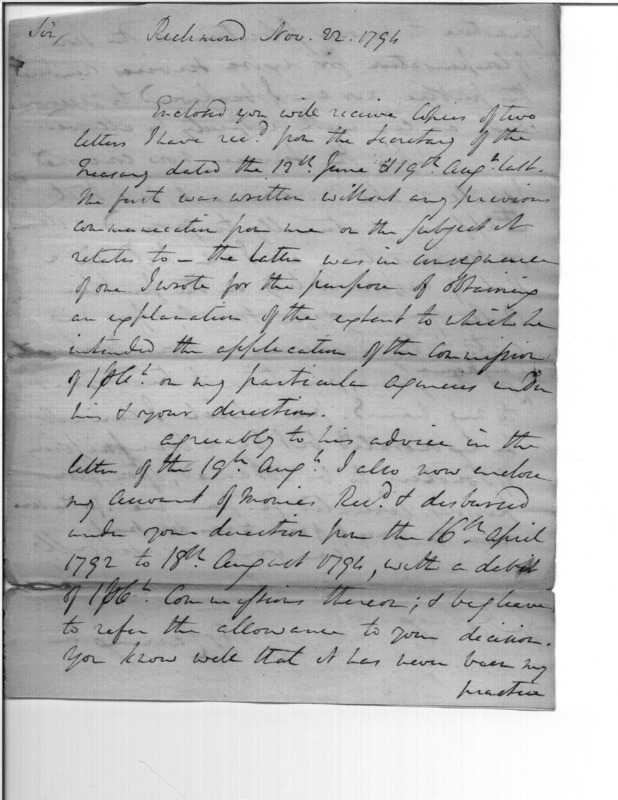 Sir, Richmond Nov. 22. 1794
Enclosed you will receive Copies of two
letters I have rec.d from the Secretary of the
Treasury dated the 12th June & 19th Augt. last.
The first was written without any previous
communication from me on the Subject it
relates to — the latter was in consequence
of one I wrote for the purpose of obtaining
an explanation of the extent to which he
intended the application of the Commission
of 1 on my particular agencies under
his & your directions.
agreeably to his advice in the
letter of the 19th Augt. I also now enclose
my account of Monies Rec.d & disbursed
under your direction from the 16th April
1792 to 18th August 1794, with a debit
of 1 Commissions thereon; & beg leave
to refer the allowance to your decision.
You know well that it has never been my
practice